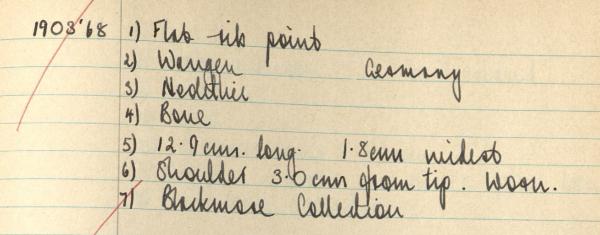 1908'68 1) Flat rib point
2) Wangen Germany
3) Neolithic
4) Bone
5) 12.9cms. long. 1.8cm widest
6) Shoulder 3.0cms from tip. Worn.
7) Blackmore Collection